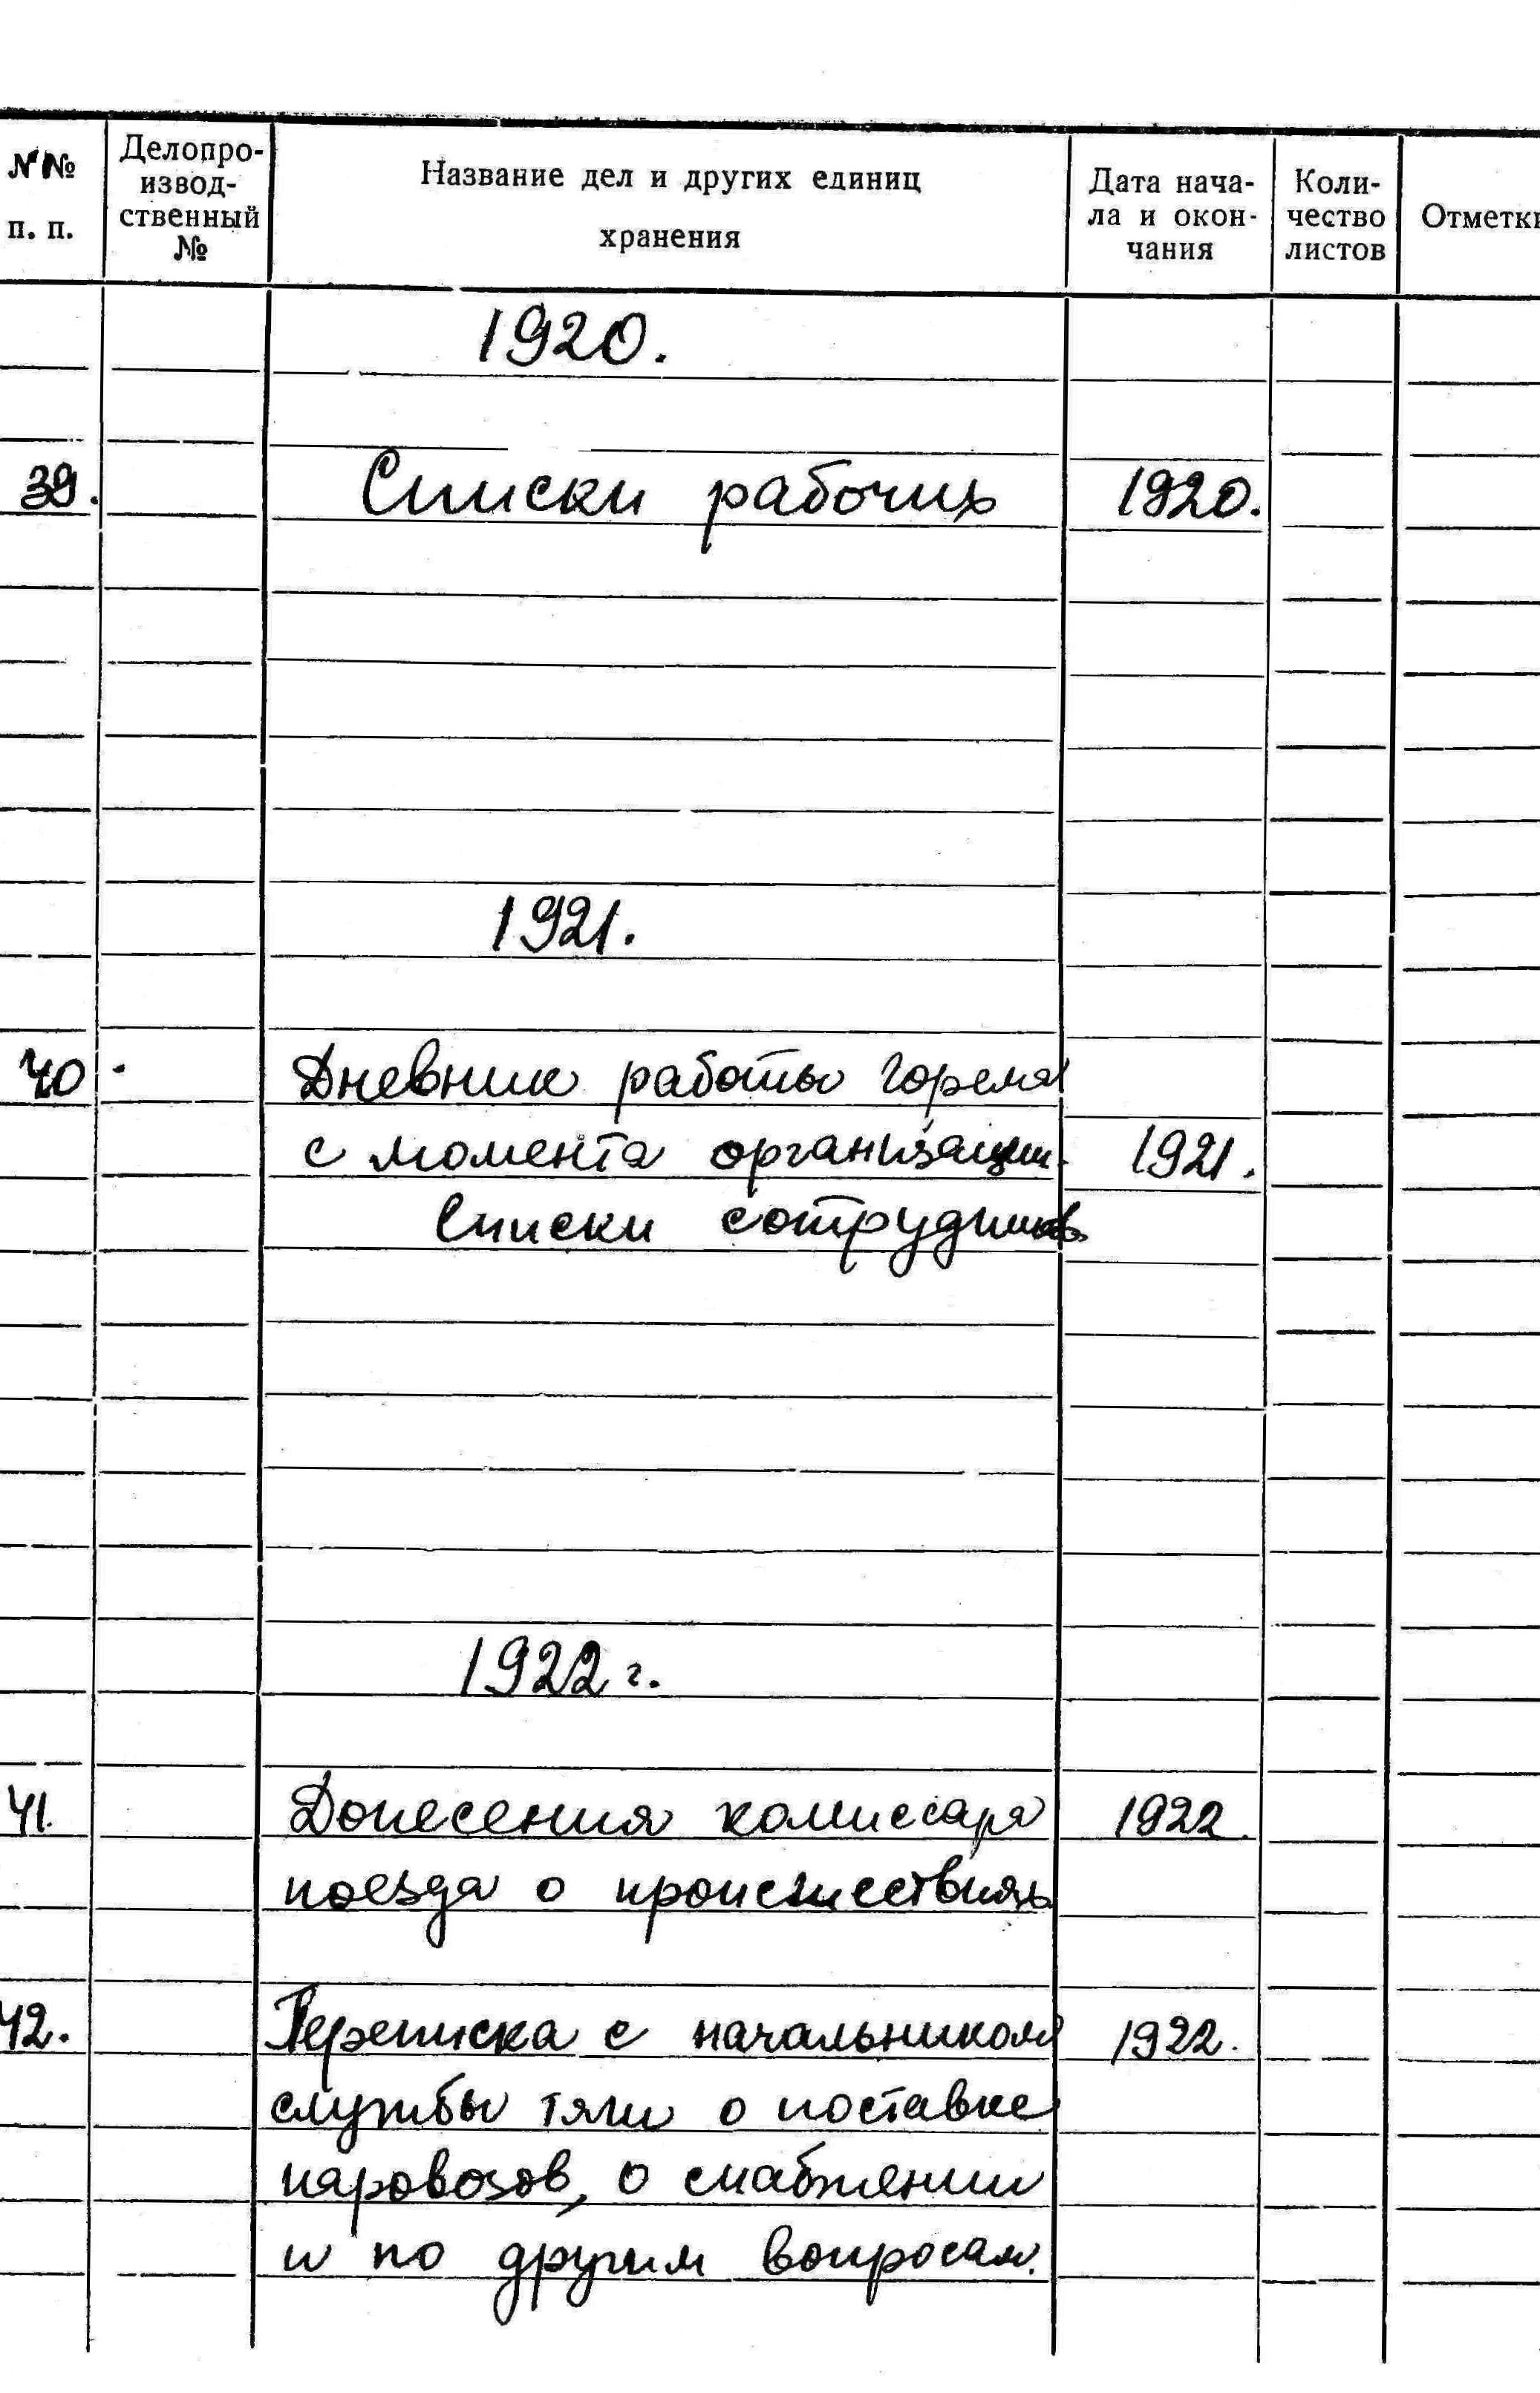 №№ п. п.
Делопро-
извод-
ственный
№
Название дел и других единиц
хранения
Дата нача-
ла и окон-
чания
Коли-
чество
листов
Отметки
1920.
39. Списки рабочих 1920.
1921.
40. Дневник работы горема
с момента организации. 1921.
Списки сотрудников
1922 г.
41. Донесения комиссара 1922.
поезда о происшествиях
42. Переписка с начальником 1922.
службы тяги о поставке
паровозов, о снабжении
и по другим вопросам.